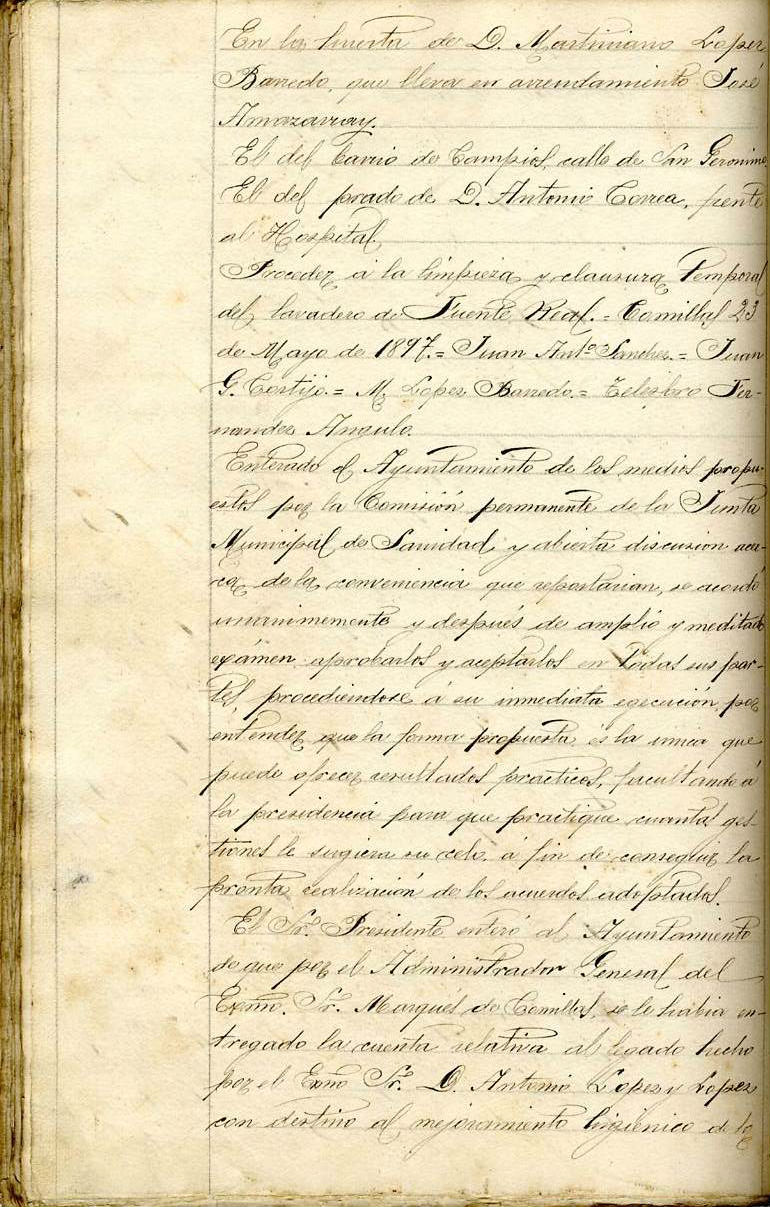 En la huerta de D. Martiniano Lopez
Barredo, que lleva en arrendamiento José
Amazarray.
El del barrio de Campios, calle de San Geronimo,
El del prado de D. Antonio Correa, frente
al Hospital.
Proceder á la limpieza y clausura temporal
del lavadero de Fuente Real. = Comillas 23
de Mayo de 1897. = Juan Antº Sanchez. = Juan
G. Cortijo. = M. Lopez Barredo. = Celesbro Fer-
nandez Angulo.
Enterado el Ayuntamiento de los medios propu-
estos por la Comisión permanente de la Junta
Municipal de Sanidad, y abierta discusion acer-
ca de la conveniencia que reportarian, se acordó
unanimemente y después de amplio y meditado
exámen aprobarlos y aceptarlos en todas sus par-
tes procediendose á su inmediata egecución, por
entender que la forma propuesta es la unica que
puede ofrecer resultados practicos, facultando á
la presidencia para que practique cuantas ges-
tiones le sugiera su celo, á fin de conseguir la
pronta realización de los acuerdos adoptados.
El Sr. Presidente enteró al Ayuntamiento
de que por el Administrador General del
Exmo. Sr. Marqués de Comillas, se le habia en-
tregado la cuenta relativa al legado hecho
por el Exmo Sr. D. Antonio Lopez y Lopez
con destino al mejoramiento higienico de la